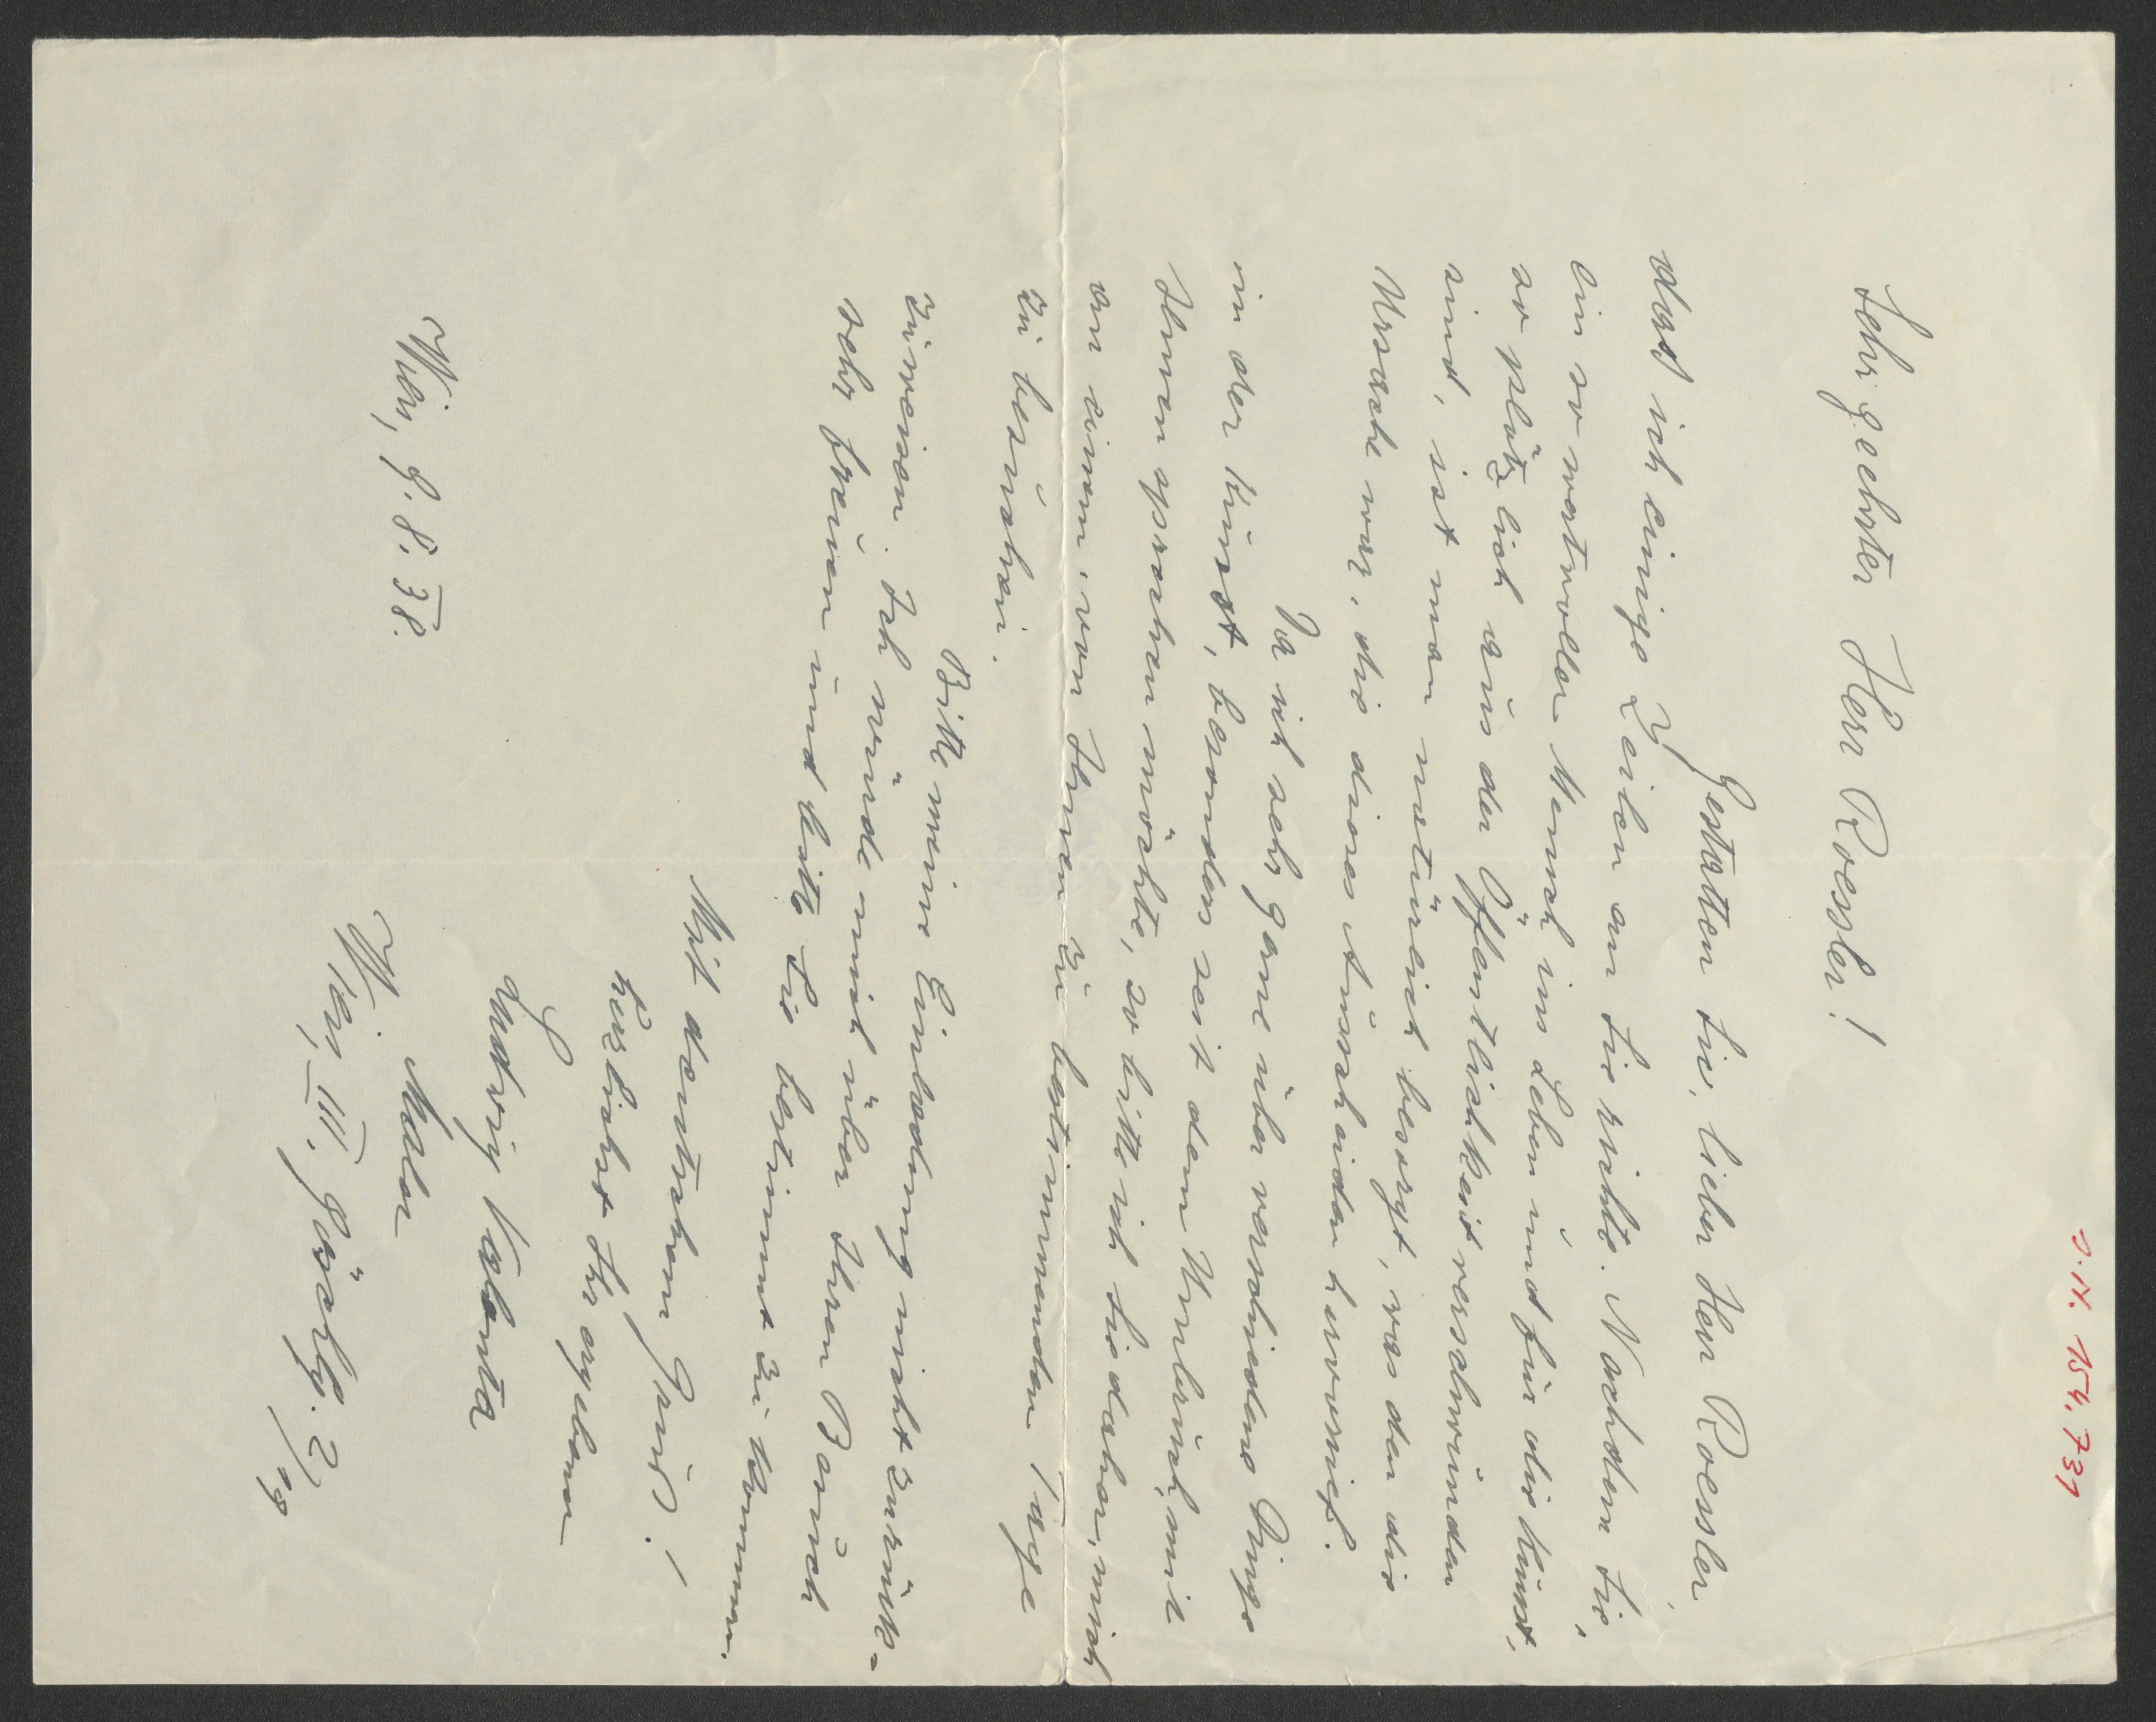 J.N. 154.731
Sehr geehrter Herr Roessler!
Gestatten Sie, lieber Herr Roessler,
dass ich einige Zeilen an Sie richte. Nachdem Sie,
ein so wertvoller Mensch ins Leben und für die Kunst,
so plötzlich aus der Öffentlichkeit verschwunden
sind, ist man natürlich besorgt, was den die
Ursache war, die dieses Ausscheiden hervorrief.
Da ich sehr gerne über verschiedene Dinge
in der Kunst, besonders seit dem Umbruch, mit
Ihnen sprechen möchte, so bitte ich Sie daher, mich
an einem, von Ihnen zu bestimmenden Tage
zu besuchen.
Bitte meine Einladung nicht zurück-
zuweisen. Ich würde mich über Ihren Besuch
sehr freuen und bitte Sie bestimmt zu kommen.
Mit deutschem Gruß!
herzlichst Ihr ergebener
Ludwig Valenta
Maler
Wien, 9.8.38.
Wien, III. Göschlg. 2/28